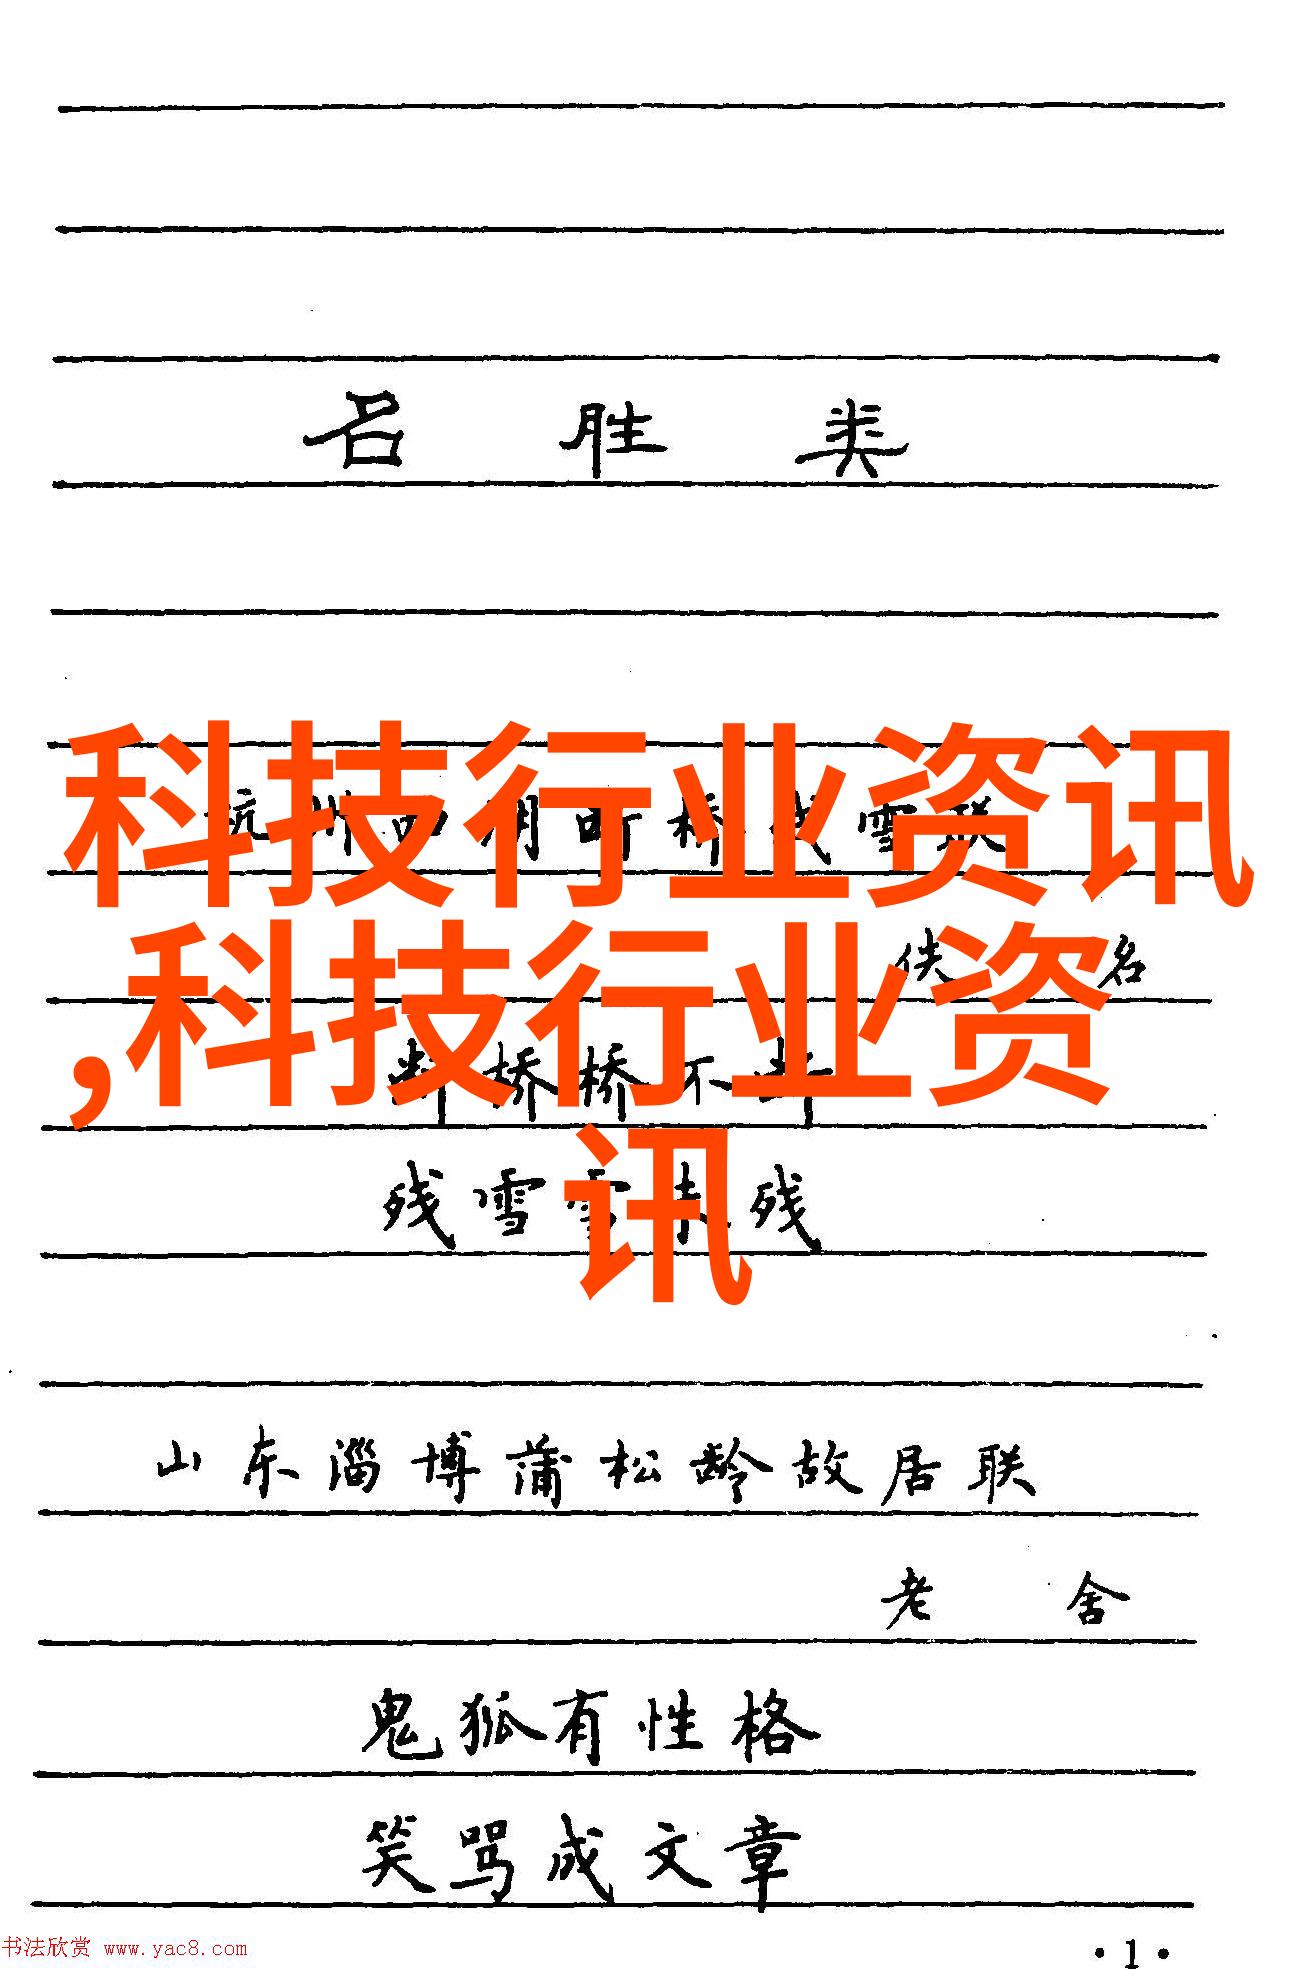 名胜类
科技行业资讯
杭州西湖断桥残雪联
佚名
,科技行业资
断桥桥不断
讯
残雪雪未残
山东淄博蒲松龄故居联
老舍
鬼狐有性格
笑骂成文章
书法欣赏 www.yac8.com
·1·